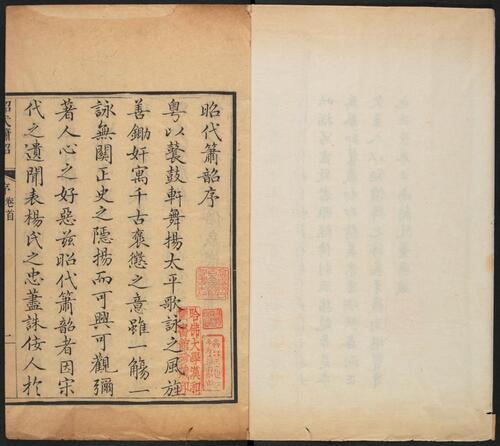 昭代簫韶序
粤以鼖鼓軒舞揚太平歌詠之風旌
善鋤奸寓千古褒懲之意雖一觴一
詠無關正史之隱揚而可興可觀彌
著人心之好惡兹昭代簫韶者因宋
代之遺聞表楊氏之忠藎誅佞人於
昭代簫韶
序
卷首
一
哈佛大學漢和
圖書館珍藏印